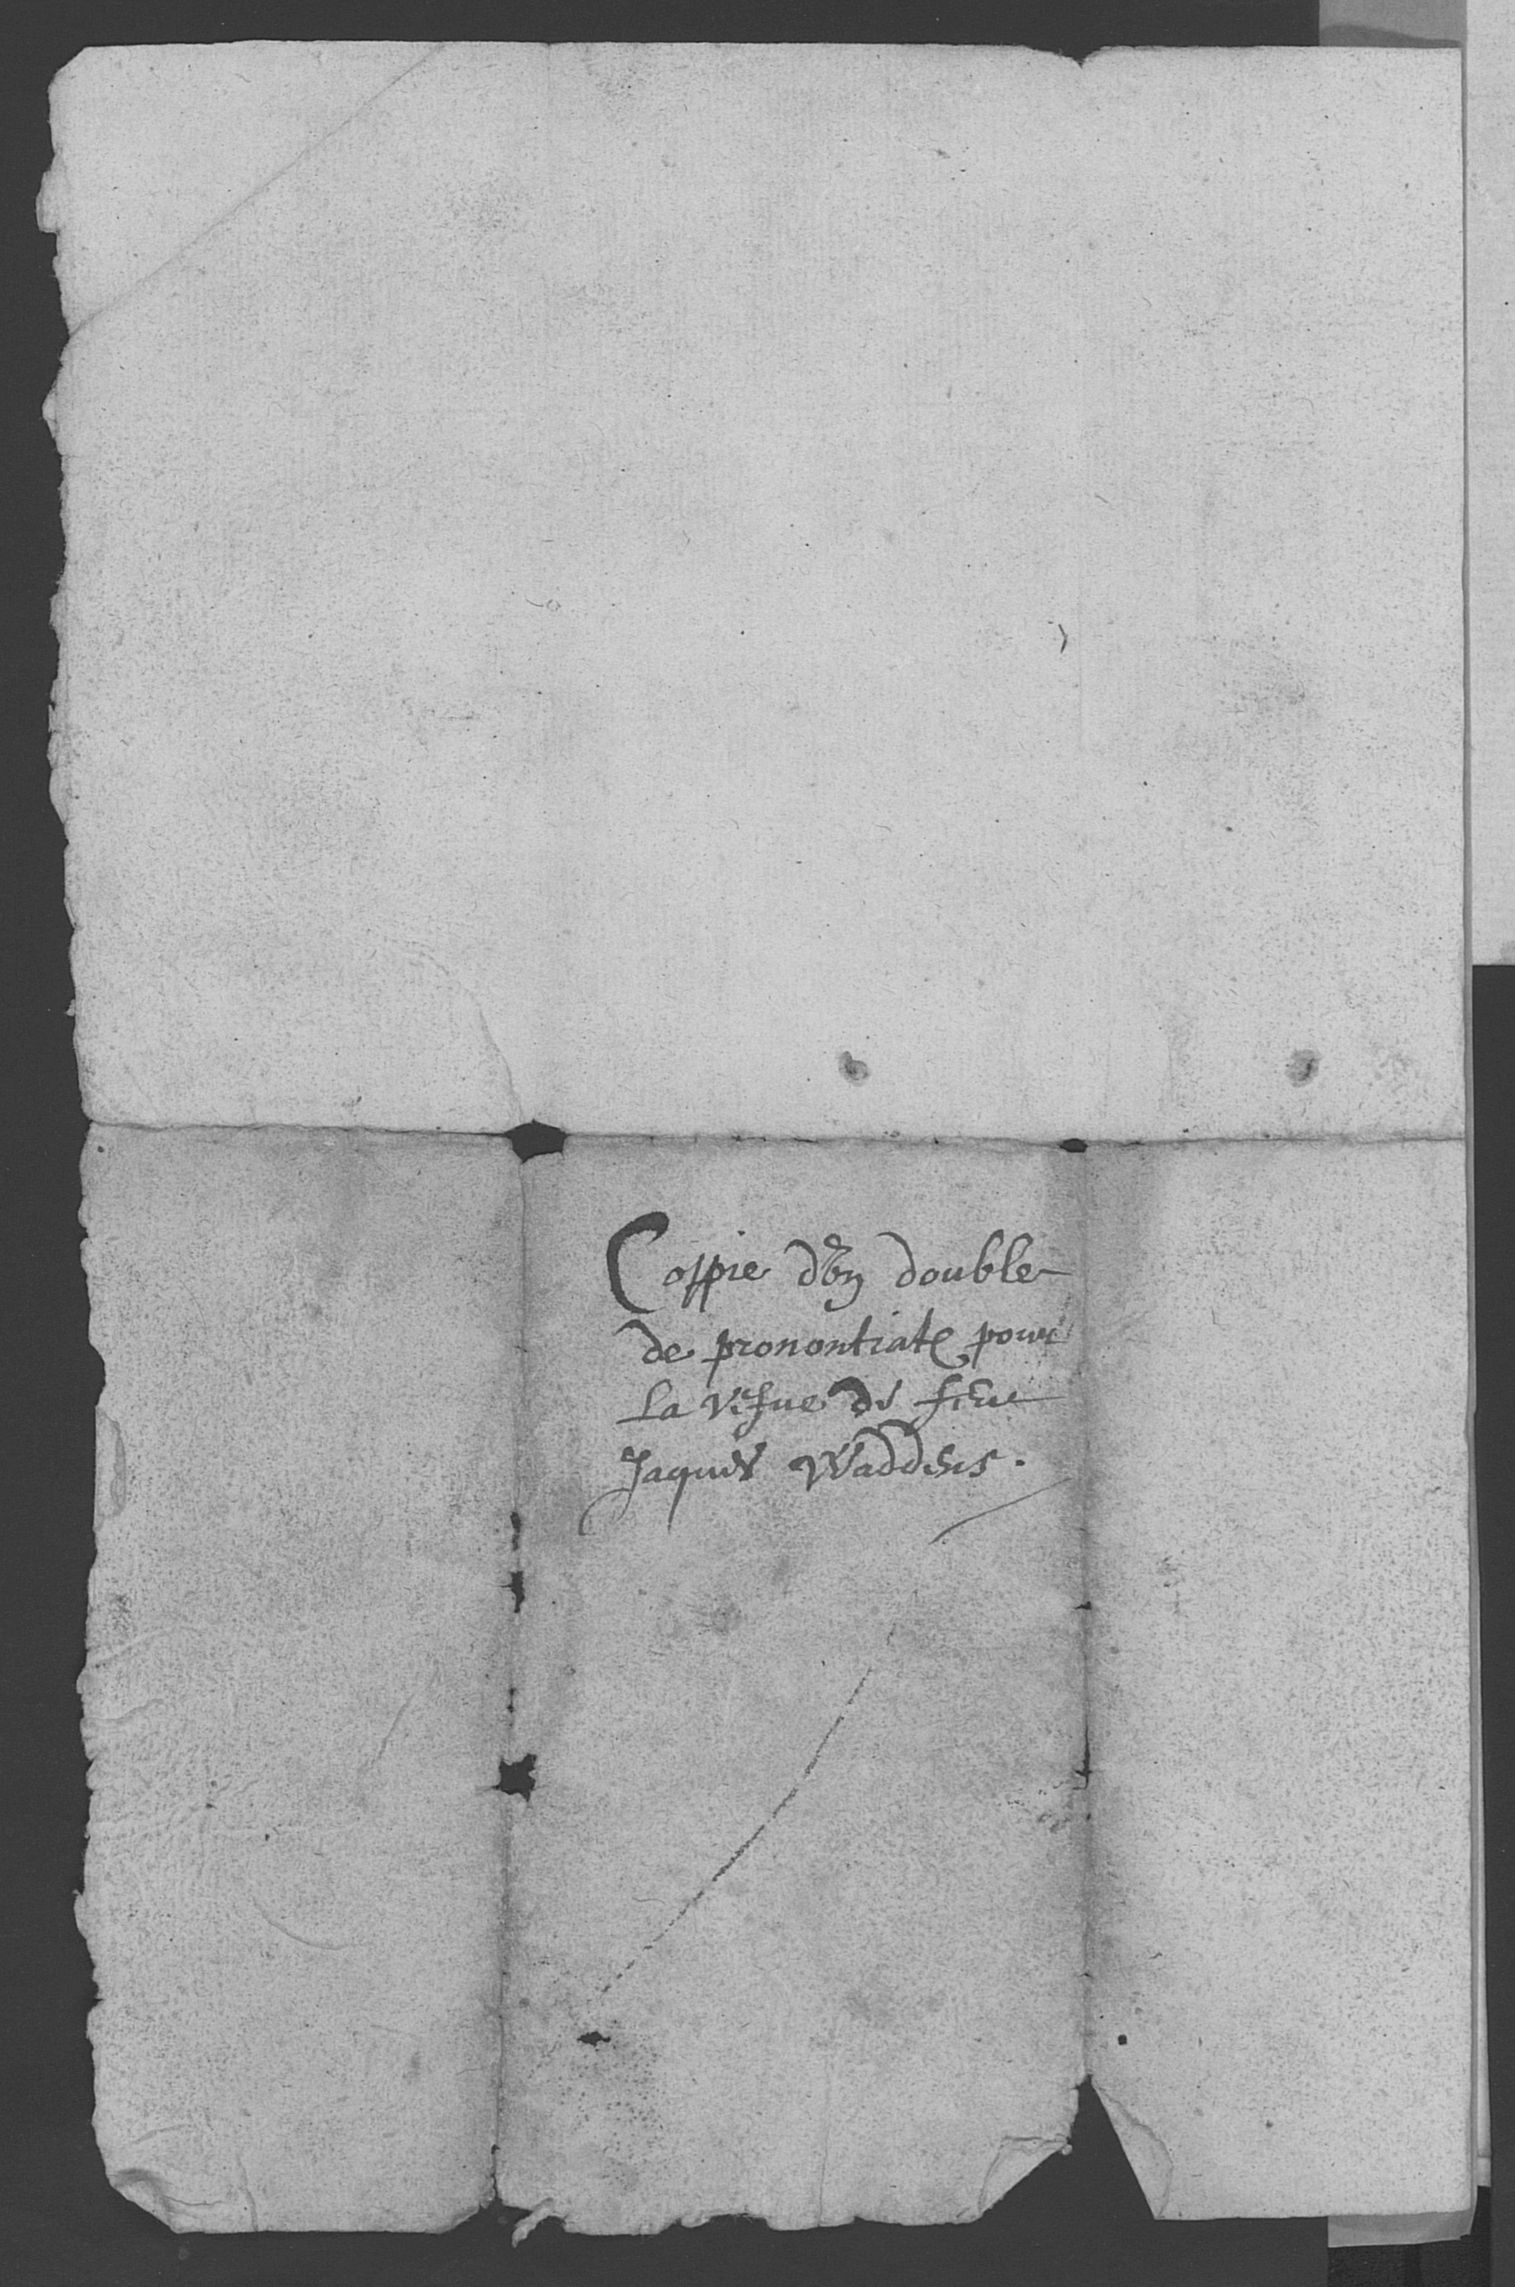 Coppie d'vn double
de pronontiat pour
la vefue de feue
Jaques Waddens.